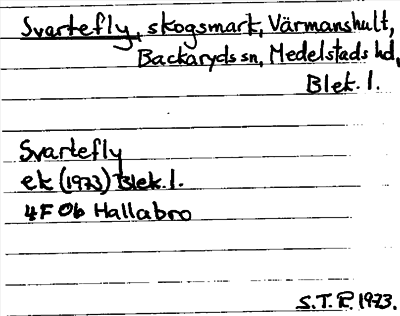 Svartefly, skogsmark, Värmanshult,
Backaryds sn, Medelstads hd,
Blek. l.
Svartefly
ek (1973) Blek. l.
4F 0b Hallabro
S.T.P. 1973.